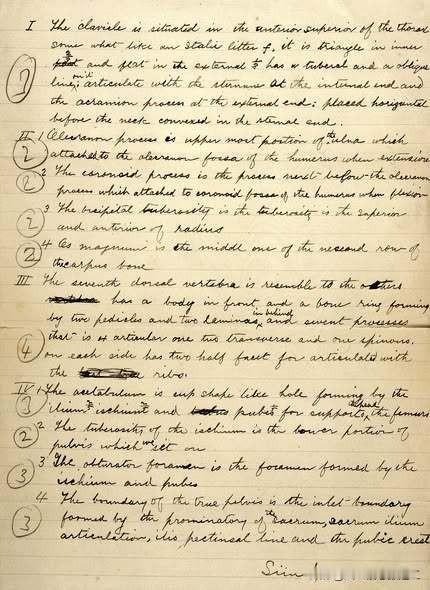 I The clavicle is situated in the anterior superior of the thorax
some what like an Italic litter f. it is triangle in inner
and flat in the external ⅓ has a tubercal and a oblique
line, articulate with the sternum at the internal end and
the acramion process at the external end: placed horizontal
before the neck convexed in the sternal end.
II 1 Olecranon process is upper most portion of the ulna which
2 attached to the olecranon fossa of the humerus when extensions
2 2 The coronoid process is the process next below the olecranon
process which attached to coronoid fossa of the humerus when flexion
2 3 The bicipital tuberosity is the tuberosity is the superior
and anterior of radius
2 4 Os magnum is the middl one of the second row of
the carpus bone
III The seventh dorsal vertebra is resemble to the others
has a body in front, and a bone ring forming
by two pedicles and two laminas, in behind and sevent processes
4 that is 4 articular one two transverse and one spinous.
on each side has two half facet for articulated with
the ribs.
IV 1 The acetabulum is cup shape like hole forming by the
3 ilium ischium and pubes for supports the head femurs
2 2 The tuberosity of the ischium is the lower portion of
pulvis which we set on
3 3 The obturator foramen is the foramen formed by the
ischium and pubes
4 The boundary of the true pelvis is the inlet boundary
3 formed by the prominatory of the sacrum, sacrum ilium
articulation, ilio pectinsal line and the pubic crest